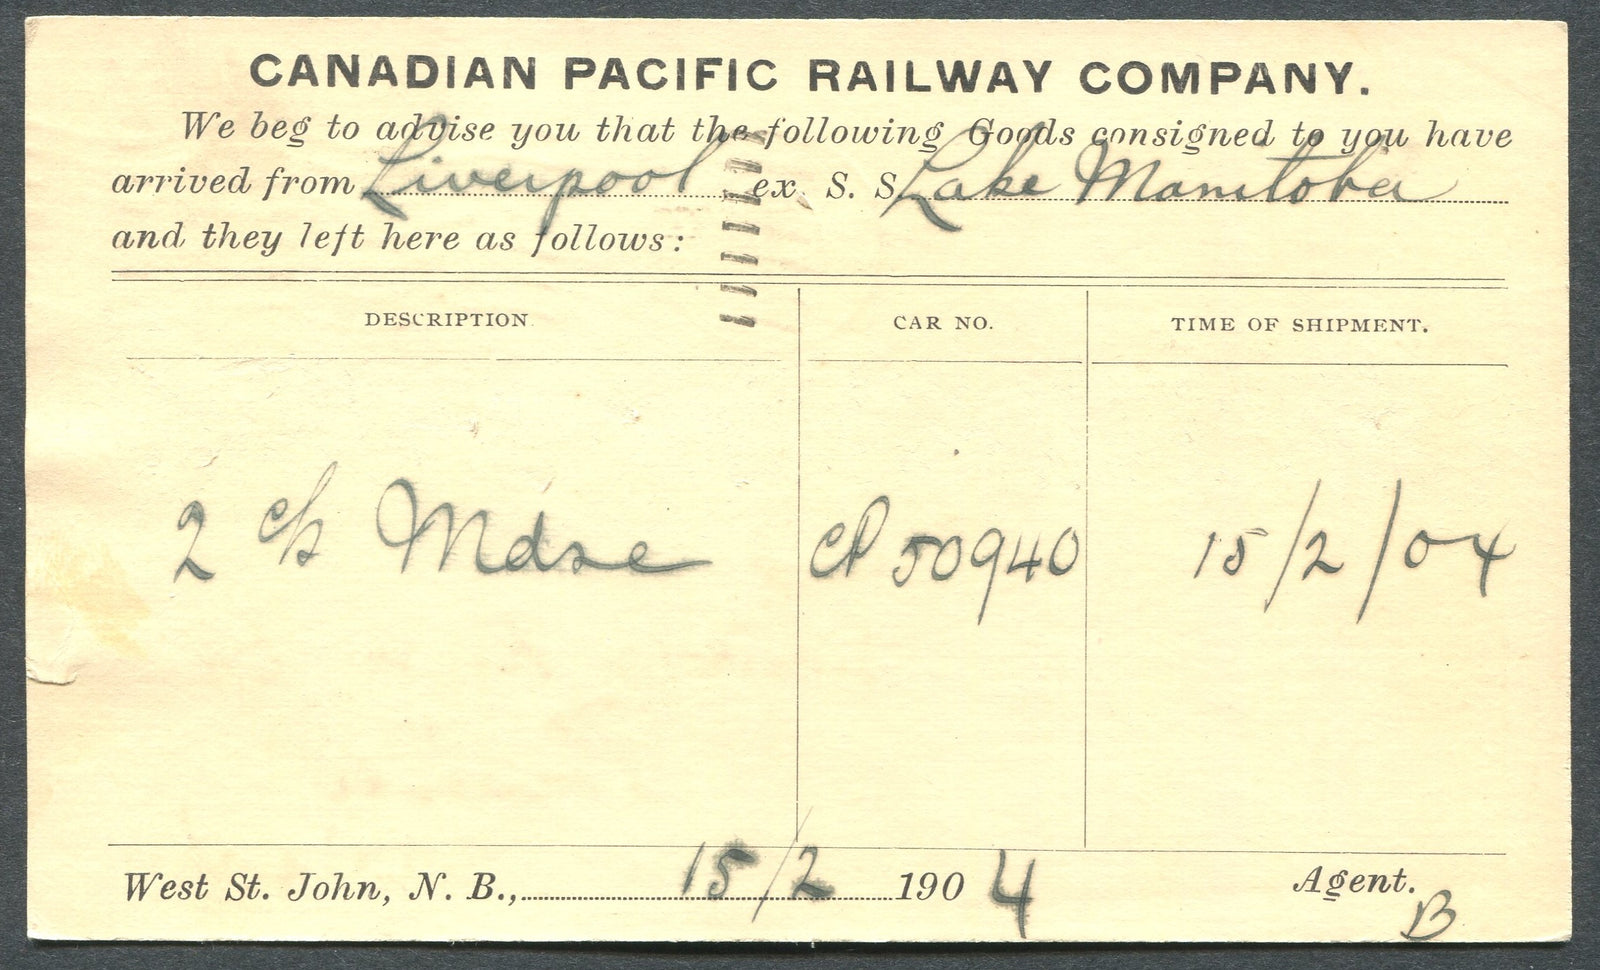 CANADIAN PACIFIC RAILWAY COMPANY.
We beg to advise you that the following Goods consigned to you have
arrived from Liverpool ex S. S. Lake Manitoba
and they left here as follows:
DESCRIPTION. CAR NO. TIME OF SHIPMENT.
2 c/s Mdse CP 50940 15/2/04
West St. John, N. B., 15/2 1904 Agent.
B